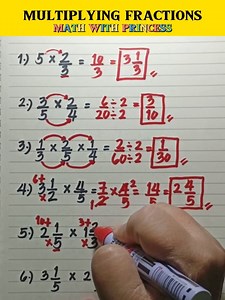 MULTIPLYING FRACTIONS
MATH WITH PRINCESS
1.) 5 × 2/3 = 10/3 = 3 1/3
2.) 3/5 × 2/4 = 6÷2/20÷2 = 3/10
3.) 1/3 × 2/5 × 1/4 = 2÷2/60÷2 = 1/30
4.) 3 1/2 × 4/5 = 7/2 × 4/5 = 14/5 = 2 4/5
5.) 2 1/5 × 1
6.) 3 1/5 × 2